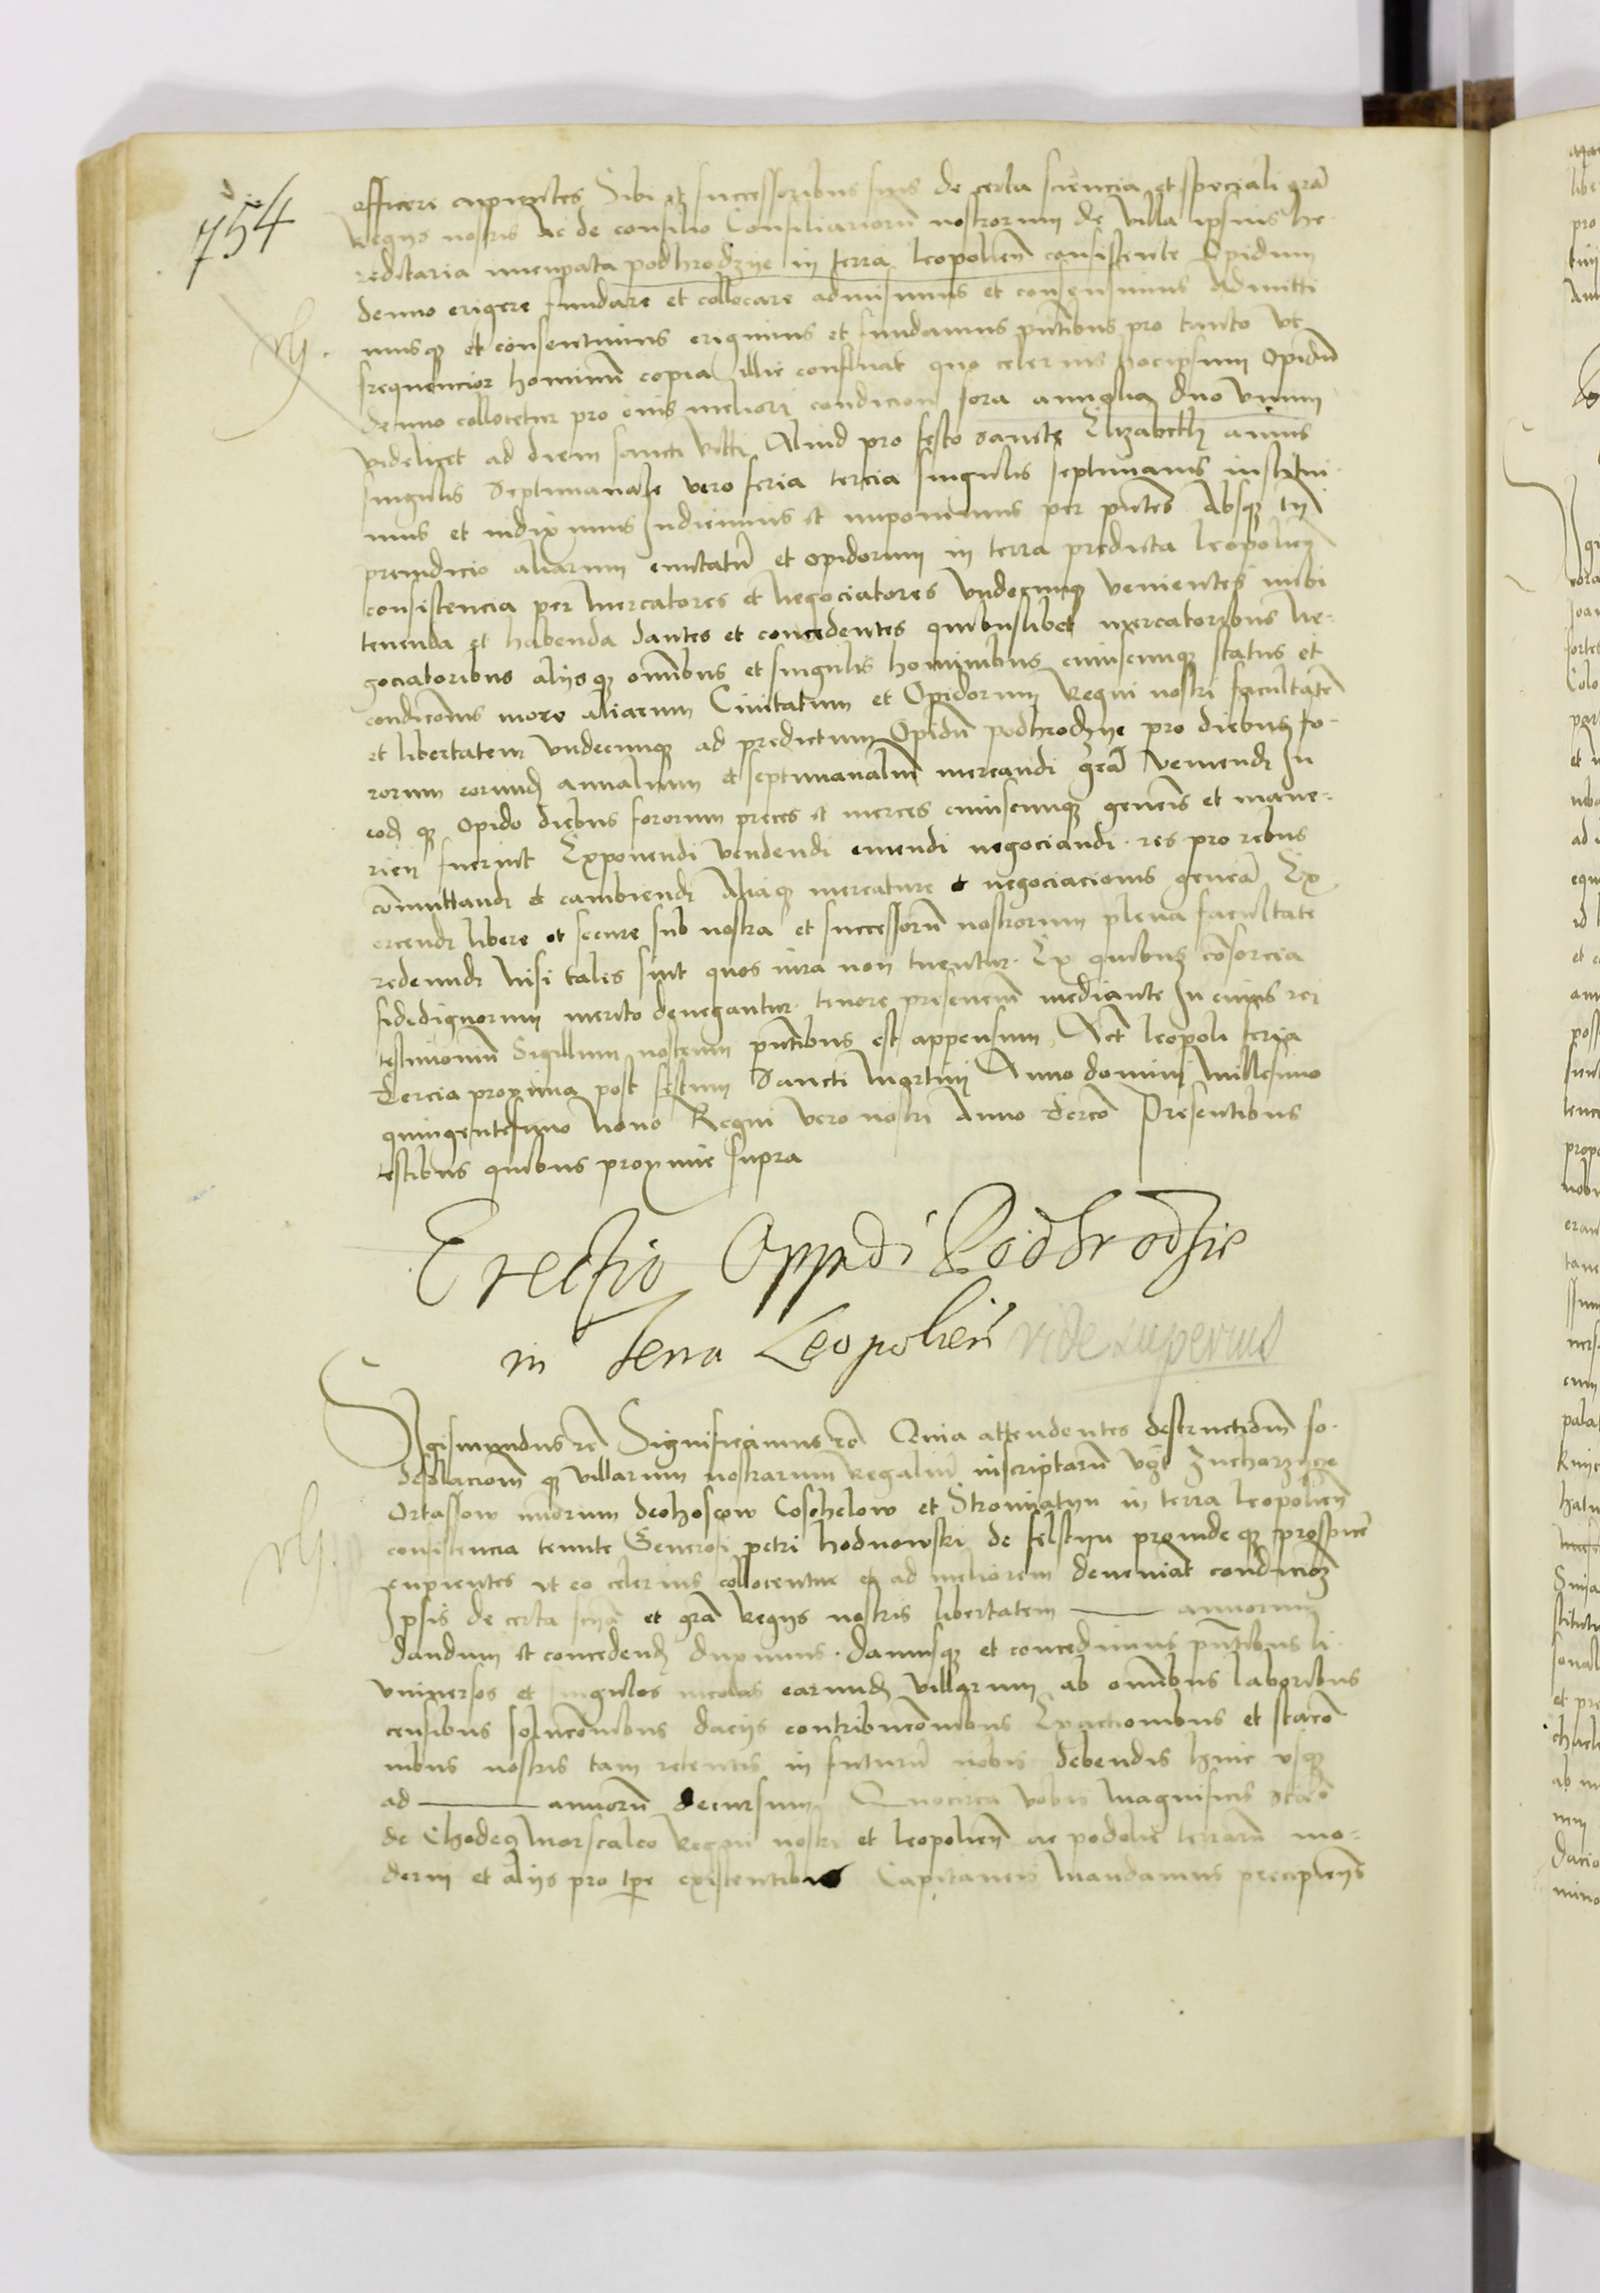 754
efficere cupientes Sibi et successoribus suis de certa sciencia et speciali grā
Regys nostris ac de consilio Consiliariorū nostrorum de villa ipsius he-
reditaria nuncupata podhrodzye in terra leopolien̄ consistente Opidum
denuo erigere fundare et collocare admisimus et consensimus Admitti
musq̨ et consentimus erigimus et fundamus pn̄tibus pro tanto vt
frequencior hominū copia illic confluat quo celerius hocipsum Opidū
denuo collocetur pro eius meliori condicion fora annalia duo vnum
videlicet ad diem sancti viti Aliud pro festo sancte Elizabeth annis
singulis Septimanale vero feria tercia singulis septimanis institui-
mus et indiximus Indicimus et imponimus per pn̄tes Absq̨ tn̄
preiudicio aliarum ciuitatū et opidorum in terra predicta leopolien̄
consistencia per mercatores et negociatores vndecunq̨ venientes inibi
tenenda et habenda dantes et concedentes quibuslibet mercatoribus ne-
gociatoribus alysq̨ om̄ibus et singulis hominibus cuiuscunq̨ status et
condicōnis more aliarum Ciuitatum et Opidorum Regni nostri facultatē
et libertatem vndecunq̨ ad predictum Opidū podhrodzye pro diebus fo-
rorum eorund̨ annalium et septimanaliū mercandi grā veniendi In
eod̨ q̨ opido diebus fororum preces et merces cuiuscunq̨ gen̄is et mane-
riei fuerint Exponendi vendendi emendi negociandi res pro rebus
cōmuttandi et cambiendi Aliaq̨ mercature et negociacionis gen̄a Ex
ercendi libere et secure sub nostra et successorū nostrorum plena facultate
redeundi nisi tales sint quos iura non tuentur. Ex quibus cōsorcia
fidedignorum merito denegantur tenore presenciū mediante In cuius rei
testimoniū Sigillum nostrum pn̄tibus est appensum Act leopoli feria
Tercia proxima post festum Sancti Martini Anno domini Millesimo
quingentesimo nono Regni vero nostri Anno Tercō Presentibus
testibus quibus proxime supra
Erectio Oppidi Podhrodzie
in terra Leopolien̄ vide superius
Sigismundus rē Significamus rē Quia attendentes destructionē so-
desolacionē q̨ villarum nostrarum Regaliū inscriptarū vz̄
Ortassow in terra leopolien̄
consistencia tenute Generosi petri hodnowski de felstyn proinde q̨
cupientes vt eo celerius collocentur et ad meliorem deueniat condicioē
Ipsis de certa scīa et grā Regys nostris libertatem —— annorum
dandum et concedend̨ duximus. damusq̨ et concedimus pn̄tibus li-
vniuersos et singulos incolas earund̨ villarum ab om̄ibus laboribus
censibus solucōnibus dacys contribucōnibus Exactionibus et stacō
nibus nostris tam retentis in futurū nobis debendis hinc vsq̨
ad —— annorū decursum Quocirca vobis Magnificis
de Chodecz Marscalco Regni nostri et leopolien̄ ac podolie terrarū mo-
derni et alys pro tp̄e existentibus Capitaneis Mandamus